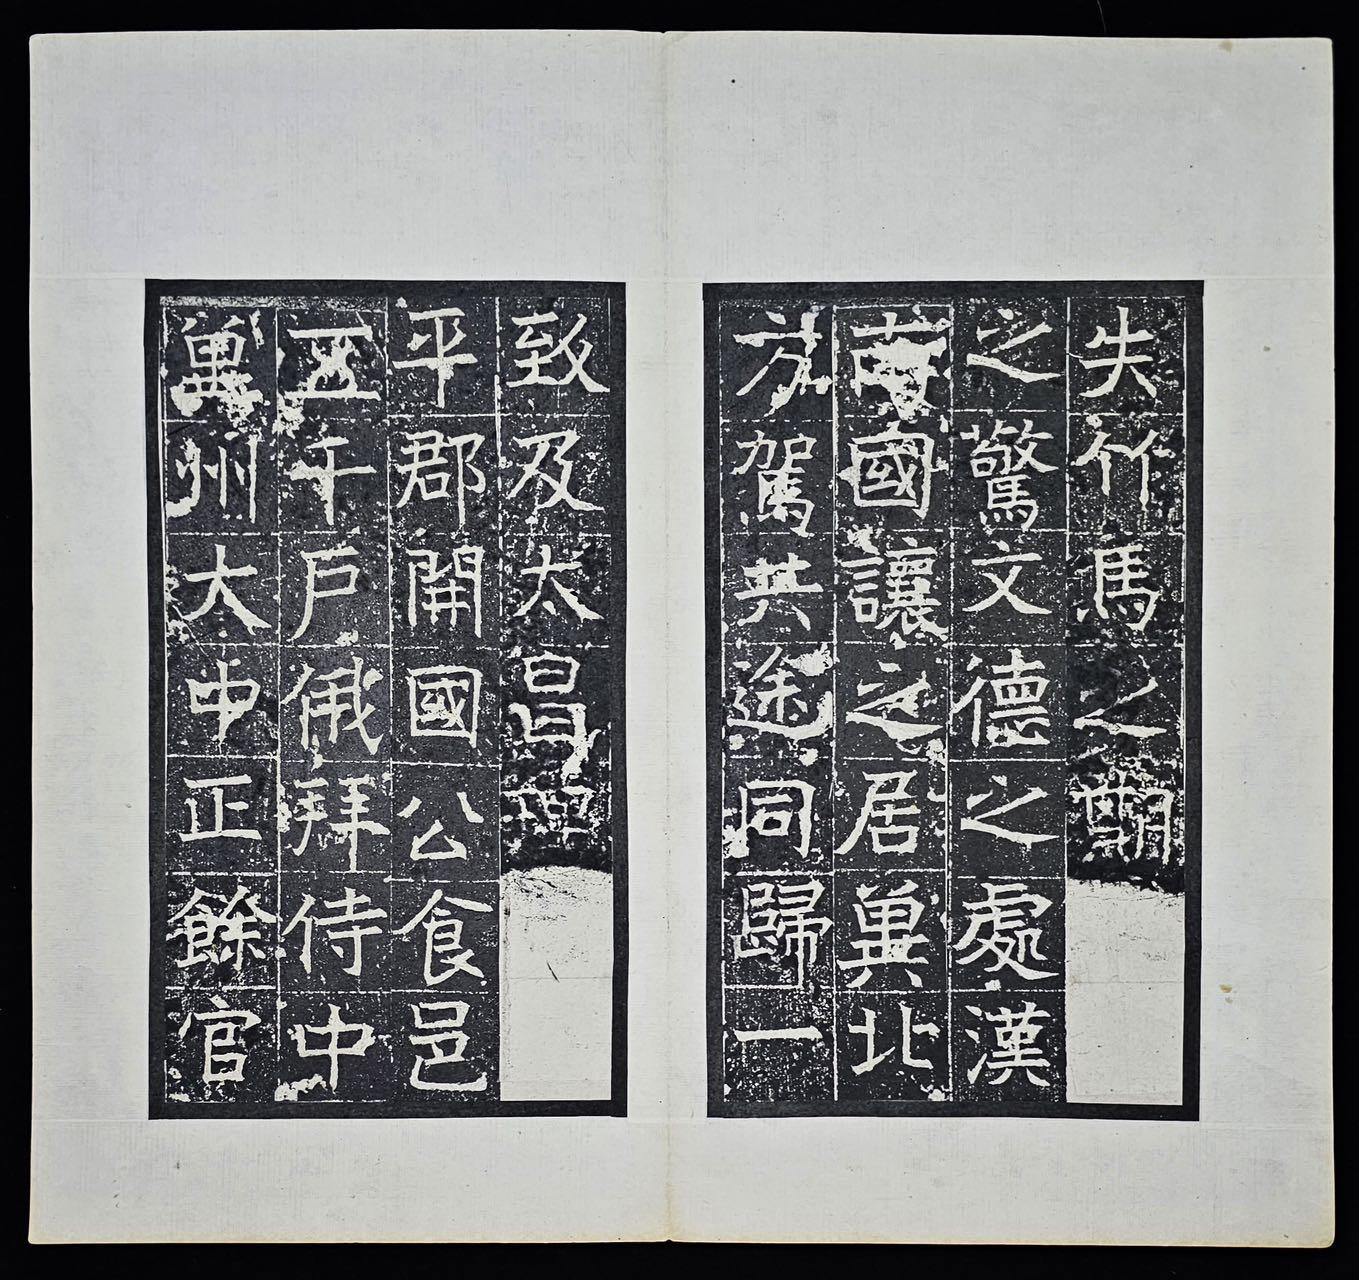 失竹馬之期
之驚文德之處漢
國讓之居冀北
方駕共途同歸一
致及太昌
平郡開國公食邑
五千戶俄拜侍中
冀州大中正餘官